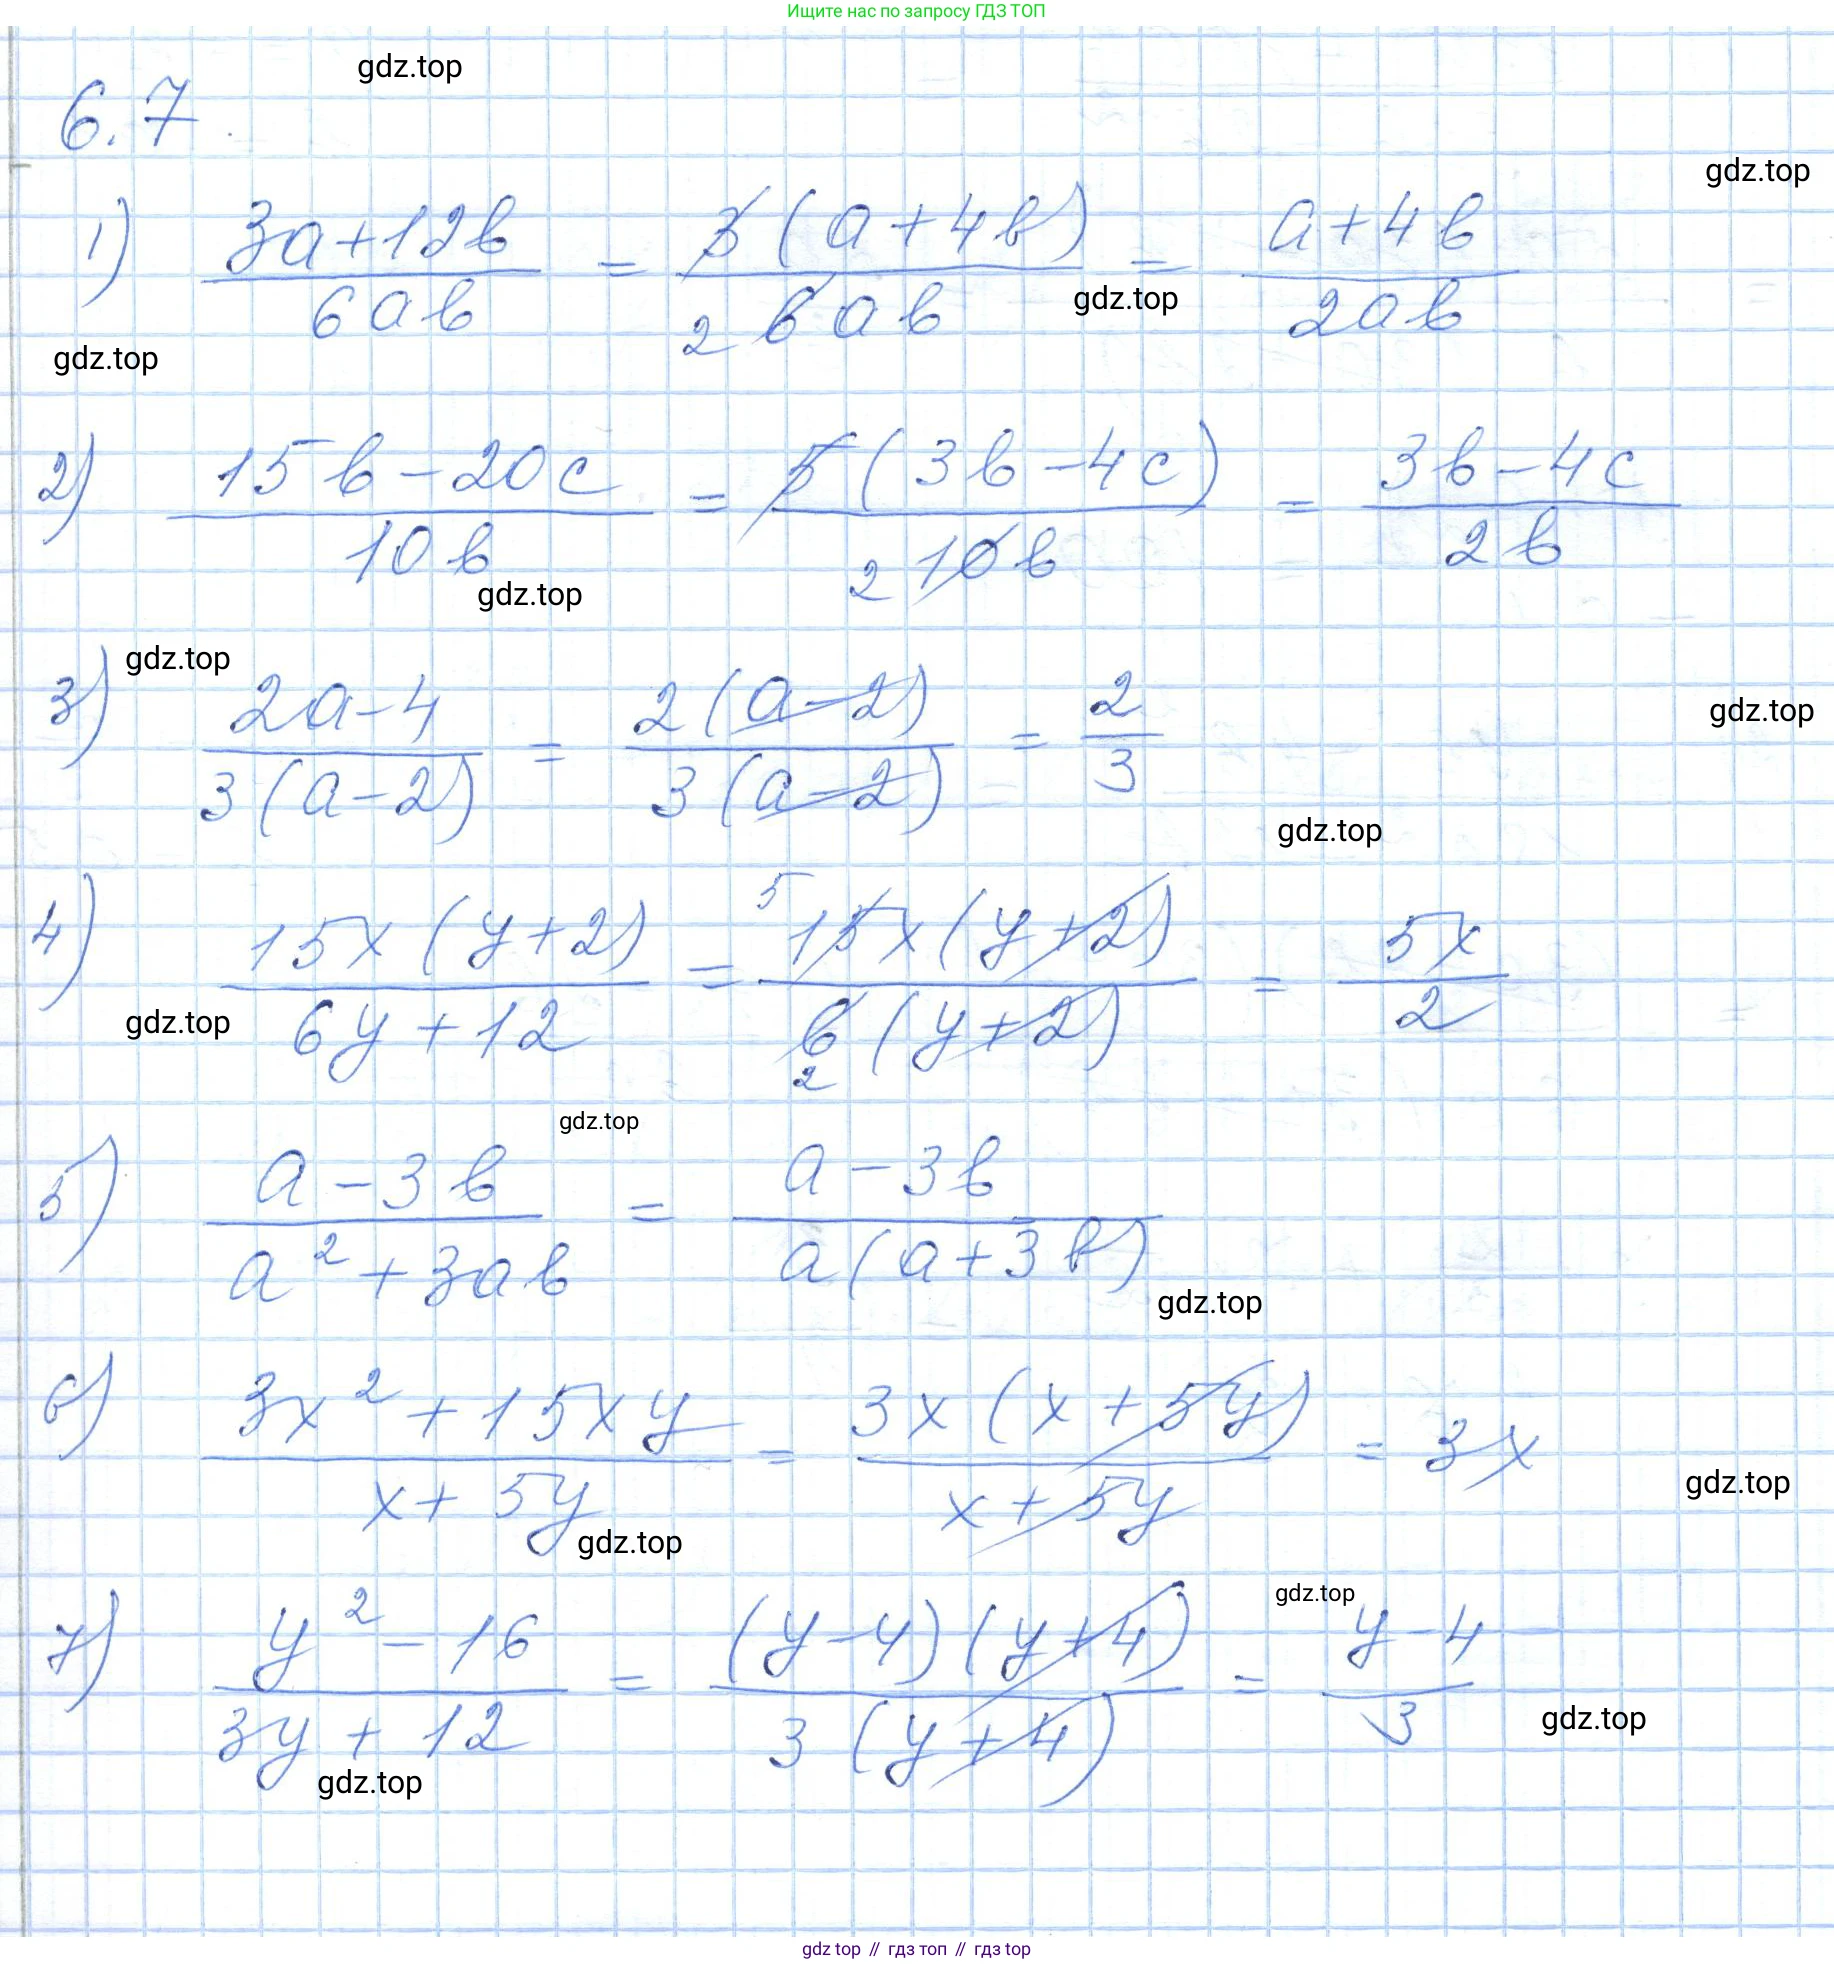 Ищите нас по запросу ГДЗ ТОП
gdz.top
6.7
gdz.top
1) (3a+12b)/(6ab) = (3(a+4b))/(2 6ab) = (a+4b)/(2ab)
gdz.top
gdz.top
2) (15b-20c)/(10b) = (5(3b-4c))/(2 10b) = (3b-4c)/(2b)
gdz.top
gdz.top
3) (2a-4)/(3(a-2)) = (2(a-2))/(3(a-2)) = 2/3
gdz.top
gdz.top
4) (15x(y+2))/(6y+12) = (5 15x(y+2))/(6(y+2) 2) = 5x/2
gdz.top
gdz.top
5) (a-3b)/(a²+3ab) = (a-3b)/(a(a+3b))
gdz.top
6) (3x²+15xy)/(x+5y) = (3x(x+5y))/(x+5y) = 3x
gdz.top
gdz.top
gdz.top
7) (y²-16)/(3y+12) = ((y-4)(y+4))/(3(y+4)) = (y-4)/3
gdz.top
gdz.top
gdz top // гдз топ // гдз top